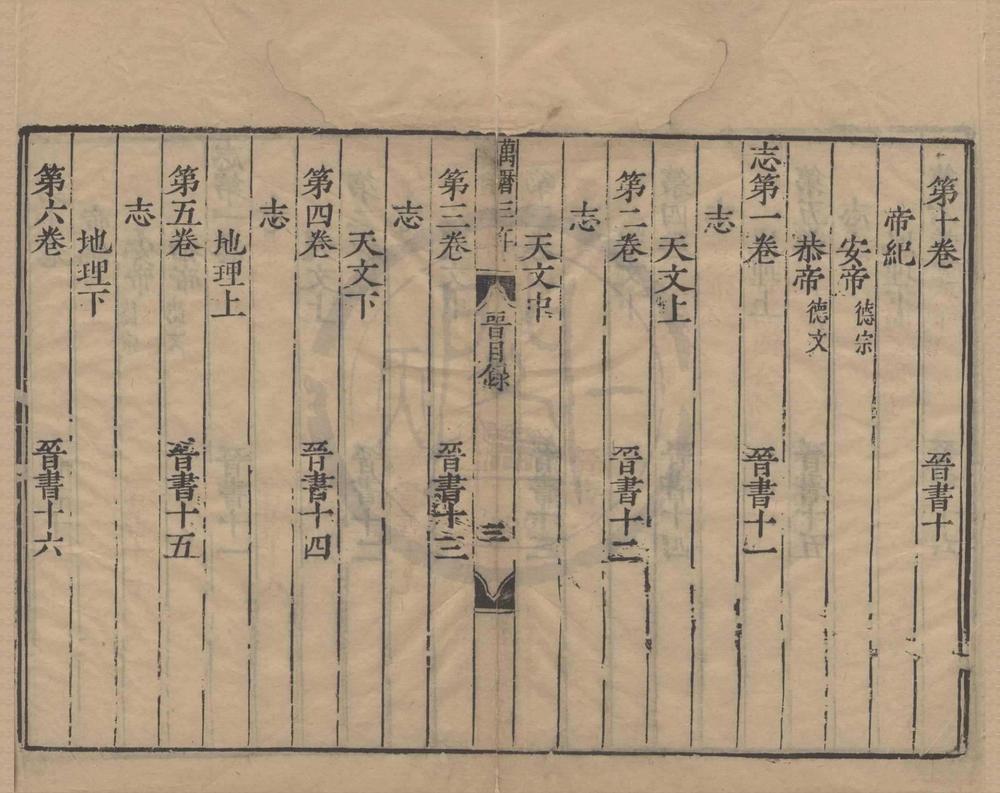 第十卷 晉書十
帝紀
安帝 德宗
恭帝 德文
志第一卷 晉書十一
志
天文上
第二卷 晉書十二
志
天文中
萬曆三年 晉目錄 三
第三卷 晉書十三
志
天文下
第四卷 晉書十四
志
地理上
第五卷 晉書十五
志
地理下
第六卷 晉書十六